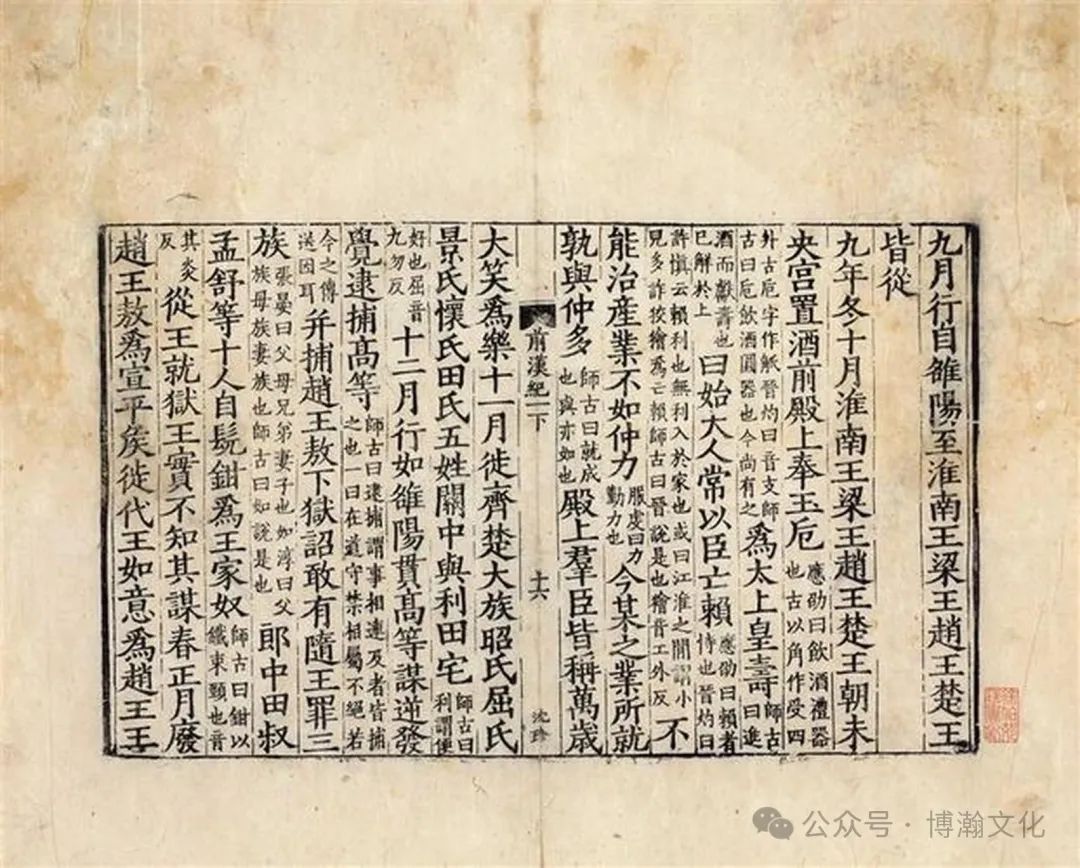 九月行自雒陽至淮南王梁王趙王楚王
皆從
九年冬十月淮南王梁王趙王楚王朝未
央宮置酒前殿上奉玉卮應劭曰飲酒禮器也古以角作受四
升古卮字作觝晉灼曰音支師古曰卮飲酒圓器也今尚有之爲太上皇壽師古曰進
酒而獻壽也已解於上曰始大人常以臣亡賴應劭曰賴者恃也晉灼曰
許慎云賴利也無利入於家也或曰江淮之間謂小兒多詐狡獪爲亡賴師古曰晉說是也獪音工外反不
能治產業不如仲力服虔曰力勤力也今某之業所就
孰與仲多師古曰就成也與亦如也殿上羣臣皆稱萬歲
前漢紀一下
十六
沈珍
大笑爲樂十一月徙齊楚大族昭氏屈氏
景氏懷氏田氏五姓關中與利田宅師古曰利謂便
好也屈音九勿反十二月行如雒陽貫高等謀逆發
覺逮捕高等師古曰逮捕謂事相連及者皆捕之也一曰在道守禁相屬不絕若
今之傳送囚耳并捕趙王敖下獄詔敢有隨王罪三
族張晏曰父母兄弟妻子也如淳曰父族母族妻族也師古曰如說是也郎中田叔
孟舒等十人自髠鉗爲王家奴師古曰鉗以鐵束頸也音
其炎反從王就獄王實不知其謀春正月廢
趙王敖爲宣平侯徙代王如意爲趙王王
公众号 · 博瀚文化